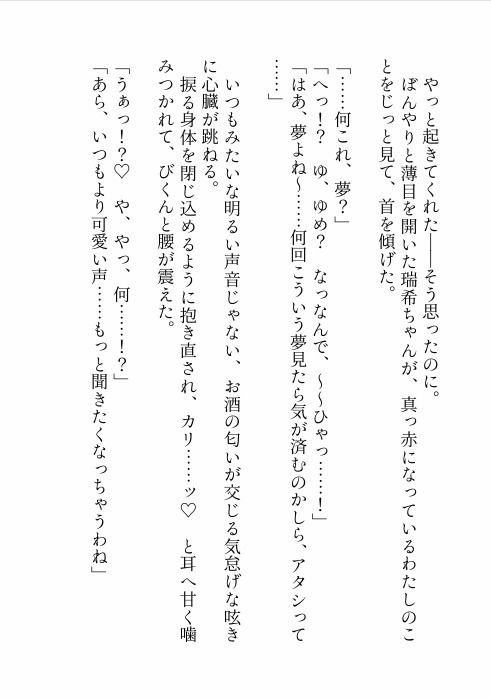 やっと起きてくれた――そう思ったのに。
ぼんやりと薄目を開いた瑞希ちゃんが、真っ赤になっているわたしのこ
とをじっと見て、首を傾げた。
「……何これ、夢？」
「へっ！？　ゆ、ゆめ？　なっなんで、～～ひゃっ……！」
「はあ、夢よね～……何回こういう夢見たら気が済むのかしら、アタシって
……」
いつもみたいな明るい声音じゃない、お酒の匂いが交じる気怠げな呟き
に心臓が跳ねる。
捩る身体を閉じ込めるように抱き直され、カリ……ッ♡　と耳へ甘く噛
みつかれて、びくんと腰が震えた。
「うぁっ！？♡　や、やっ、何……！？」
「あら、いつもより可愛い声……もっと聞きたくなっちゃうわね」